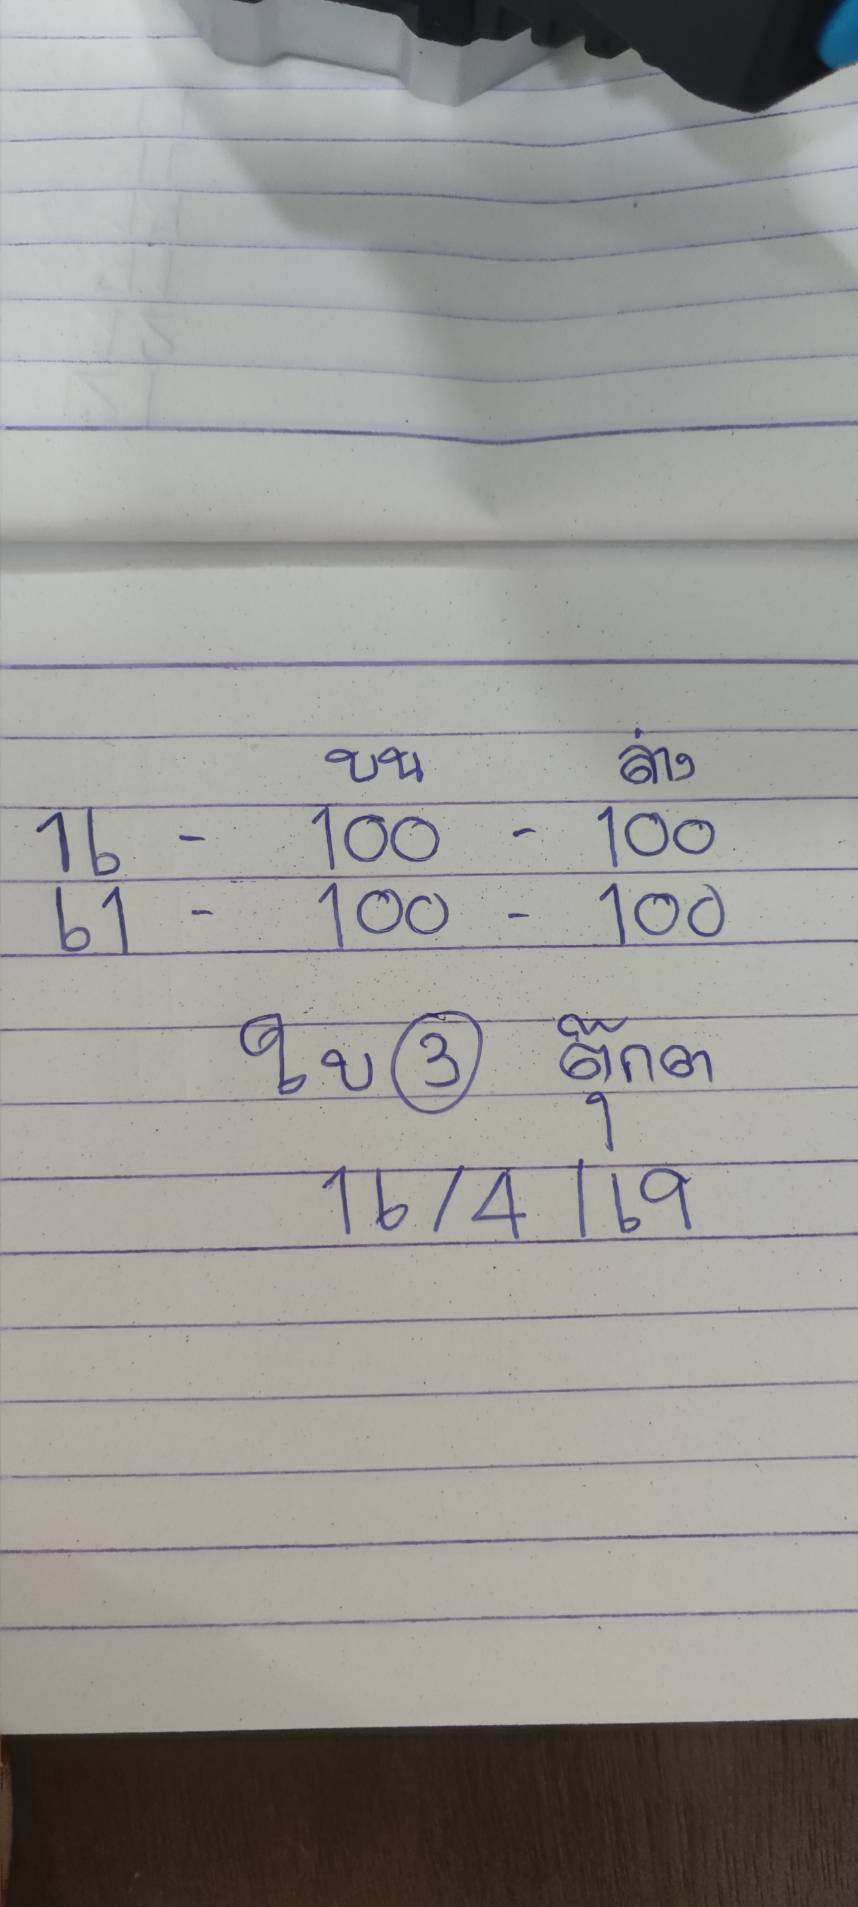 บน ล่าง
16 - 100 - 100
61 - 100 - 100
ใบ 3 ตุ๊กตา
16/4/69